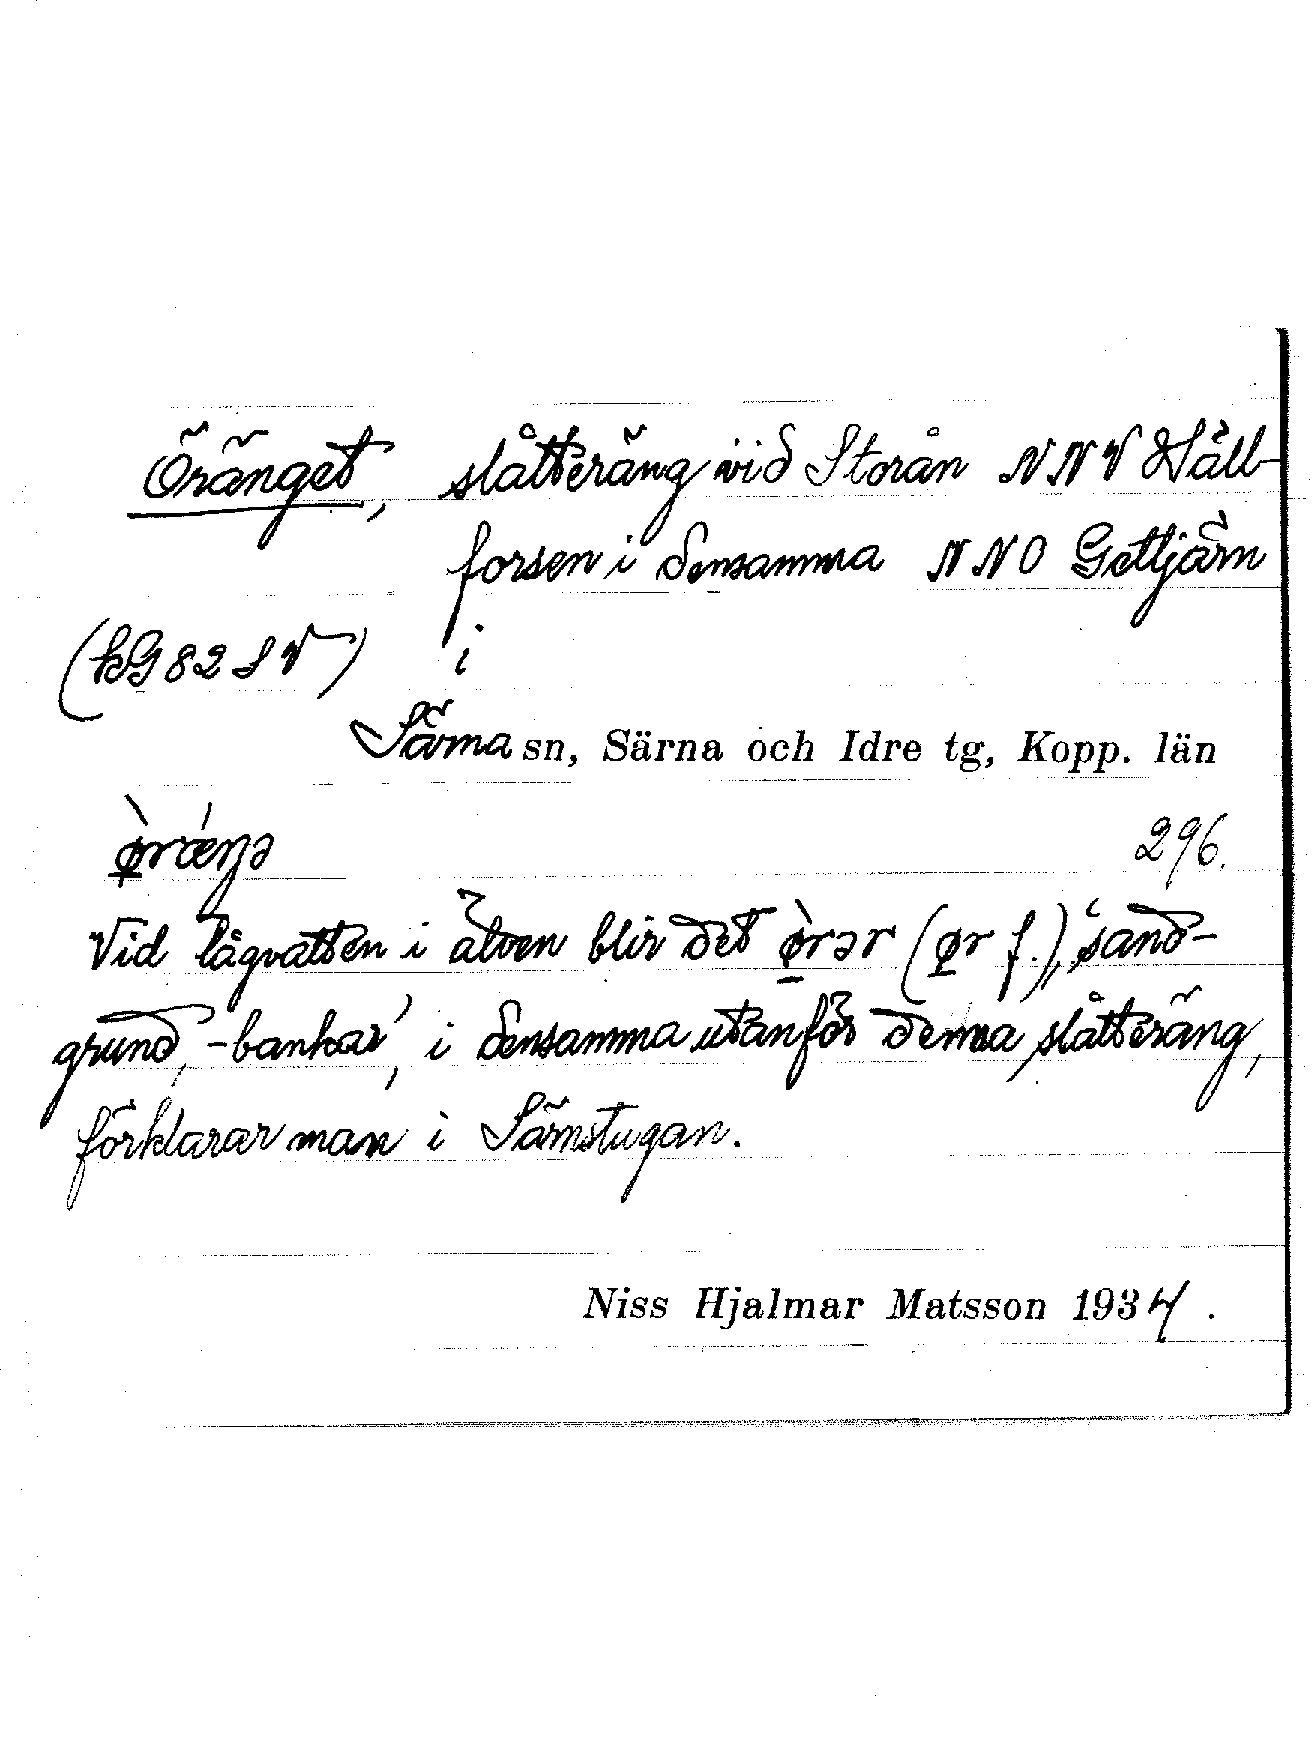 Öränget, slåtteräng vid Storån NNV Häll-
forsen i densamma NNO Gettjärn
(kG82SV) i
Särna sn, Särna och Idre tg, Kopp. län
ø̀rǽŋə 296.
Vid lågvatten i älven blir det ø̀rər (ør f.), 'sand-
grund, -bankar', i densamma utanför denna slåtteräng,
förklarar man i Särnstugan.
Niss Hjalmar Matsson 1934.